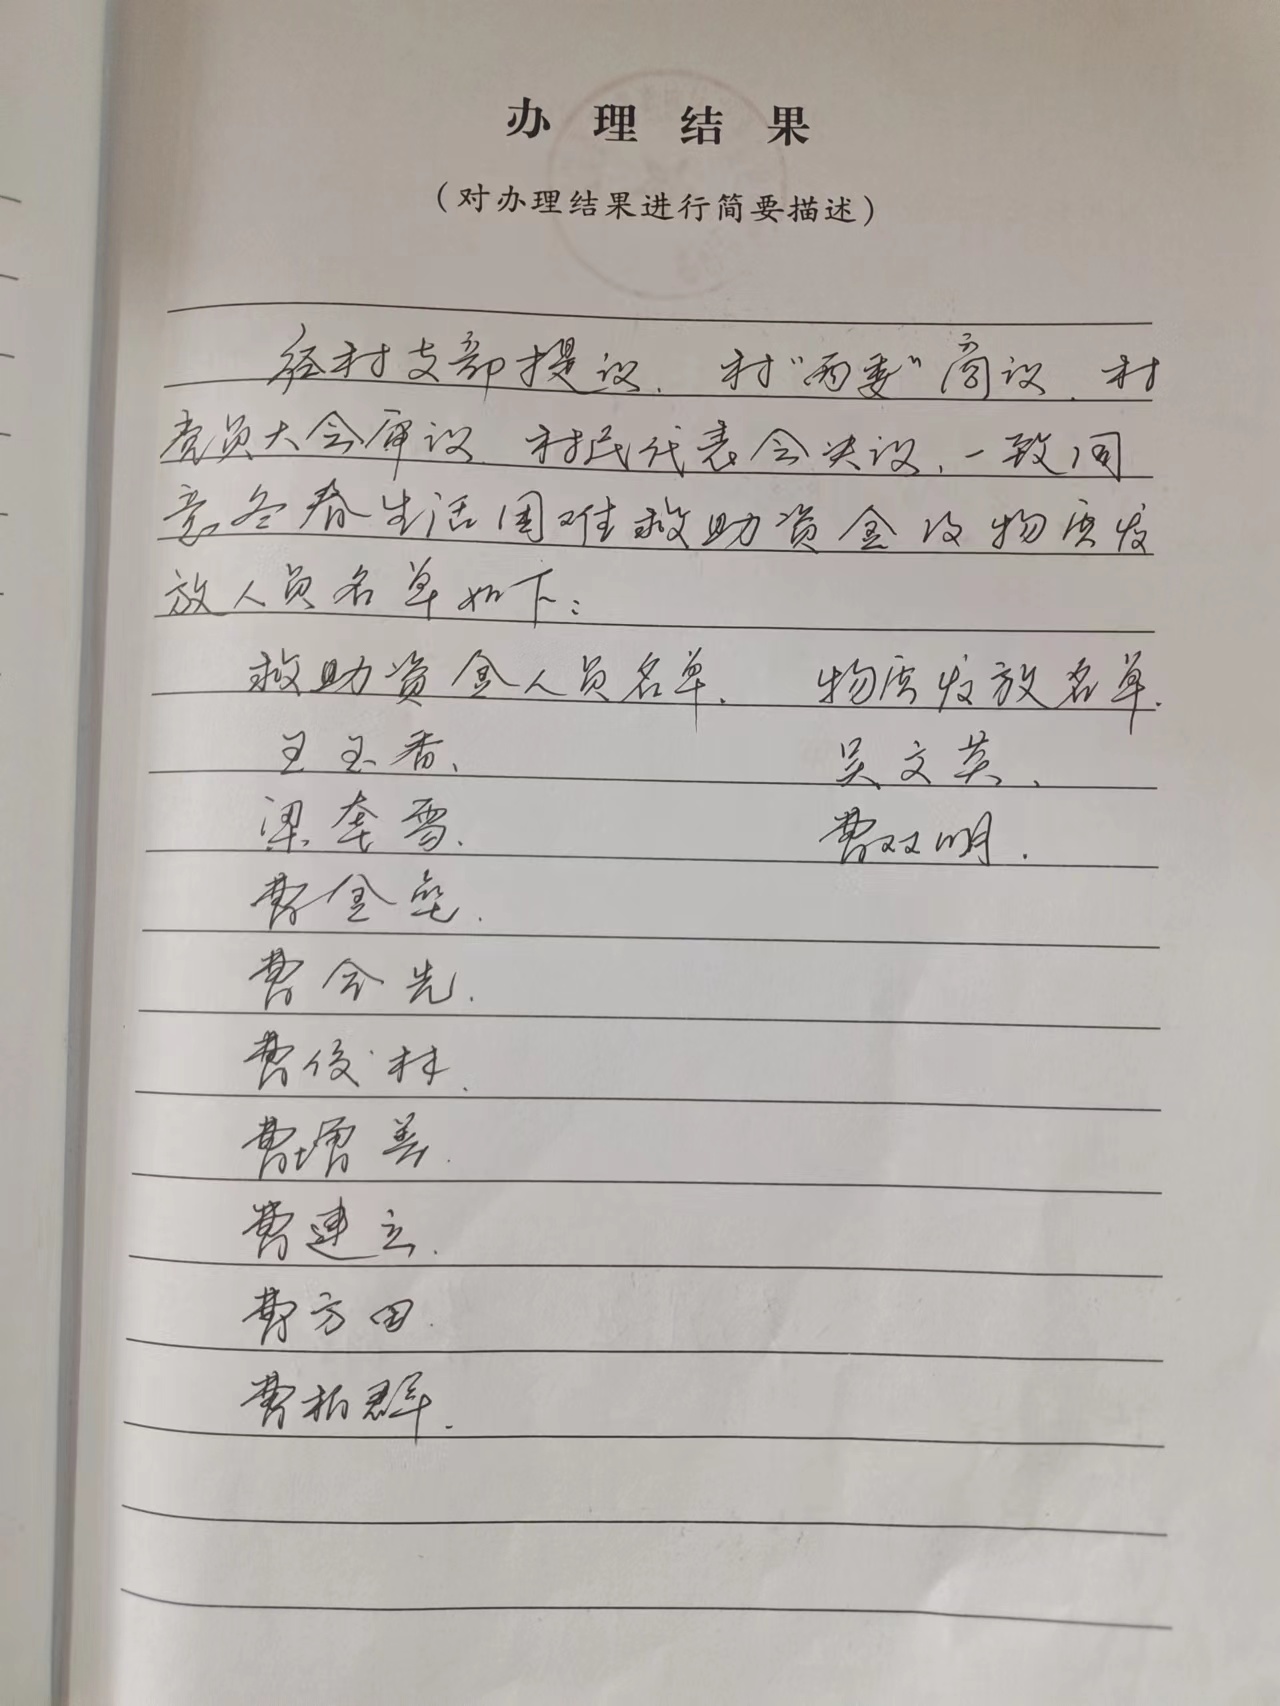 办理结果
（对办理结果进行简要描述）
经村支部提议、村“两委”商议、村
党员大会审议、村民代表会决议、一致同
意冬春生活困难救助资金及物质发
放人员名单如下：
救助资金人员名单、 物质发放名单.
王玉香、 吴文英、
梁奎雪. 曹双明.
曹金
曹会先.
曹俊林.
曹增善.
曹建立.
曹方田.
曹柏群.